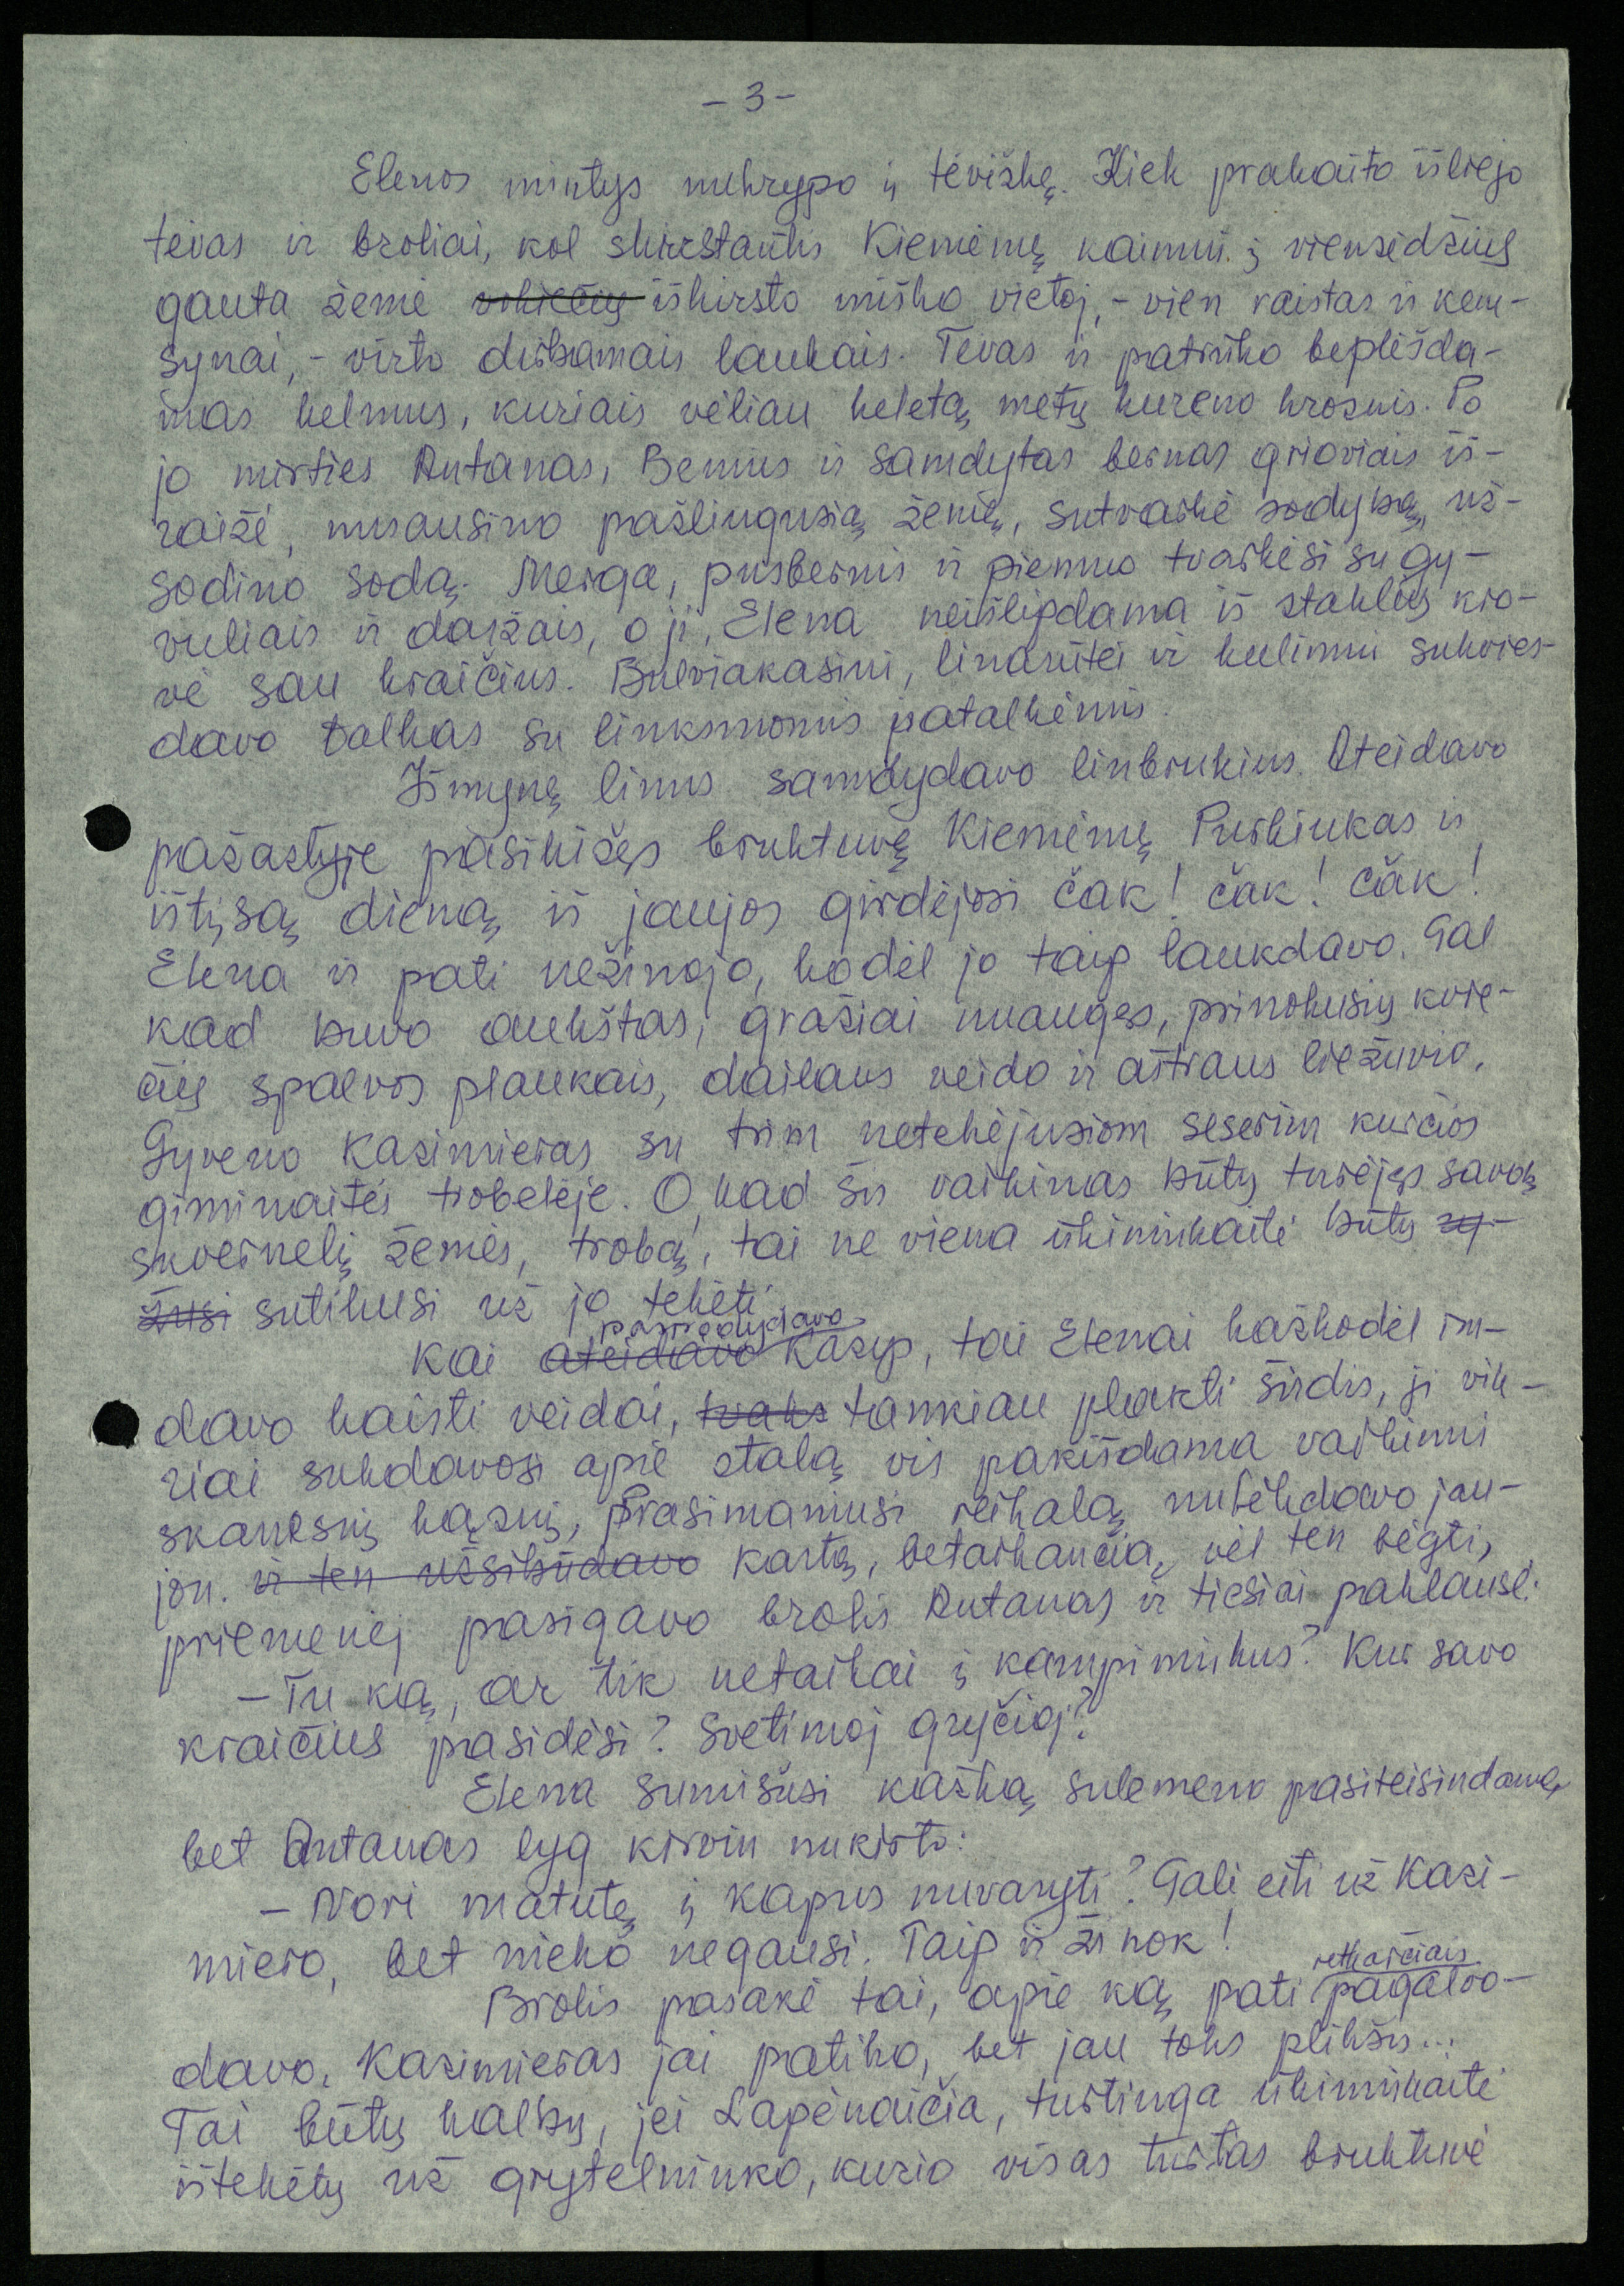 - 3 -
Elenos mintys nukrypo į tėviškę. Kiek prakaito išliejo
tėvas ir broliai, kol skirstantis Kiemėnų kaimui į viensėdžius
gauta žemė iškirsto miško vietoj, - vien raistas ir kem-
synai, - virto dirbamais laukais. Tėvas ir patrūko beplėšda-
mas kelmus, kuriais vėliau keletą metų kūreno krosnis. Po
jo mirties Antanas, Benius ir samdytas bernas grioviais iš-
raižė, nusausino pažliugusią žemę, sutvarkė sodybą, už-
sodino sodą. Merga, pusbernis ir piemuo tvarkėsi su gy-
vuliais ir daržais, o ji, Elena neišlipdama iš staklių kro-
vė sau kraičius. Bulviakasini, linarūtei ir kūlimui sukvies-
davo talkas su linksmomis patalkėmis.
Išmynę linus samdydavo linbrukius. Ateidavo
pažastyje pasikišęs bruktuvę Kiemėnų Purkiukas ir
ištisą dieną iš jaujos girdėjosi čak! čak! čak!
Elena ir pati nežinojo, kodėl jo taip laukdavo. Gal
kad buvo aukštas, gražiai nuaugęs, prinokusių kvie-
čių spalvos plaukais, dailaus veido ir aštraus liežuvio.
Gyveno Kazimieras su trim netekėjusiom seserim kurčios
giminaitės trobelėje. O, kad šis vaikinas būtų turėjęs savo
skvernelį žemės, trobą, tai ne viena ūkininkaitė būtų ry-
žusi sutikusi už jo tekėti.
pasirodydavo
Kai ateidavo Kazys, tai Elenai kažkodėl im-
davo kaisti veidai, tvaks tankiau plakti širdis, ji vik-
riai sukdavosi apie stalą vis pakišdama vaikinui
skanesnį kąsnį, Prasimaniusi reikalą nubėgdavo jau-
jon. ir ten užsibūdavo Kartą, betaikančią vėl ten bėgti,
priemenėj pasigavo brolis Antanas ir tiesiai paklausė:
- Tu ką, ar tik netaikai į kampininkus? Kur savo
kraičius pasidėsi? Svetimoj gryčioj?
Elena sumišusi kažką sulemeno pasiteisindama,
bet Antanas lyg kirviu nukirto:
- Nori matutę į kapus nuvaryti? Gali eiti už Kazi-
miero, bet nieko negausi. Taip ir žinok!
retkarčiais
Brolis pasakė tai, apie ką pati pagalvo-
davo. Kazimieras jai patiko, bet jau toks plikšis...
Tai būtų kalbų, jei Lapėnaičia, turtinga ūkininkaitė
ištekėtų už grytelninko, kurio visas turtas bruktuvė